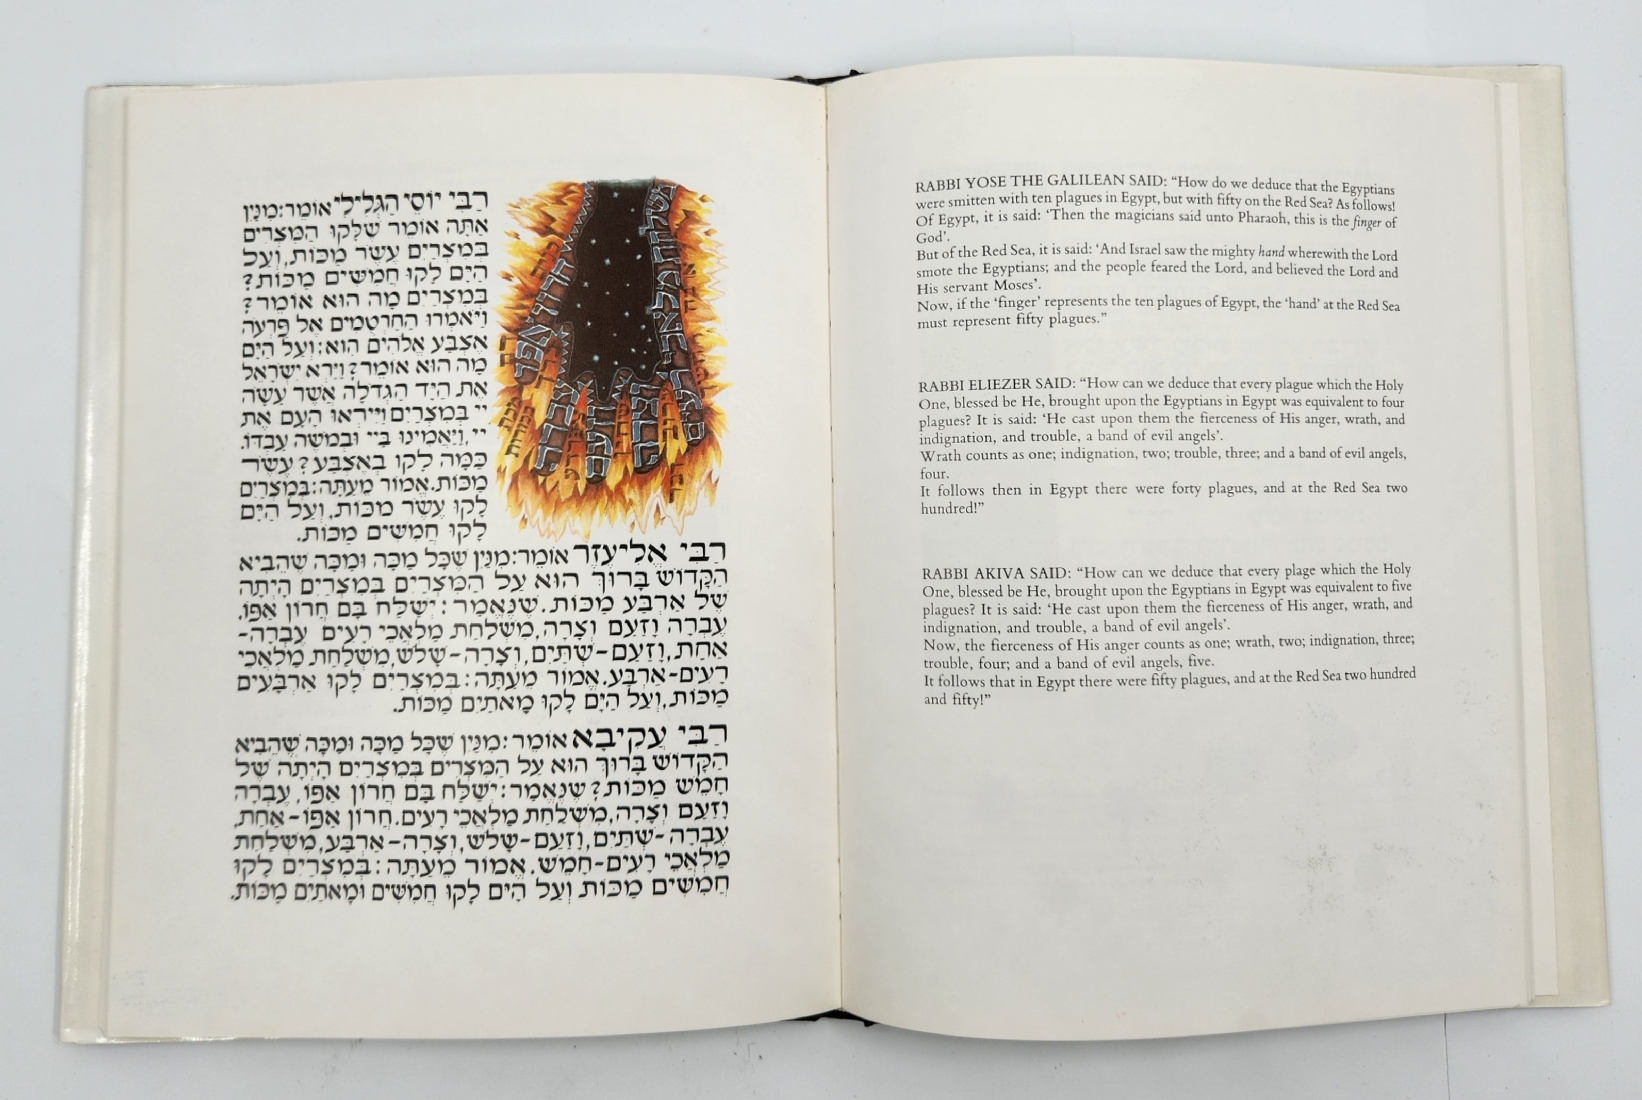 רַבִּי יוֹסֵי הַגְּלִילִי אוֹמֵר: מִנַּיִן
אַתָּה אוֹמֵר שֶׁלָּקוּ הַמִּצְרִים
בְּמִצְרַיִם עֶשֶׂר מַכּוֹת, וְעַל
הַיָּם לָקוּ חֲמִשִּׁים מַכּוֹת?
בְּמִצְרַיִם מָה הוּא אוֹמֵר?
וַיֹּאמְרוּ הַחַרְטֻמִּים אֶל פַּרְעֹה
אֶצְבַּע אֱלֹהִים הוּא: וְעַל הַיָּם
מָה הוּא אוֹמֵר? וַיַּרְא יִשְׂרָאֵל
אֶת הַיָּד הַגְּדֹלָה אֲשֶׁר עָשָׂה
יי בְּמִצְרַיִם וַיִּירְאוּ הָעָם אֶת
יי, וַיַּאֲמִינוּ בַּיי וּבְמֹשֶׁה עַבְדּוֹ.
כַּמָּה לָקוּ בְאֶצְבַּע? עֶשֶׂר
מַכּוֹת. אֱמוֹר מֵעַתָּה: בְּמִצְרַיִם
לָקוּ עֶשֶׂר מַכּוֹת, וְעַל הַיָּם
לָקוּ חֲמִשִּׁים מַכּוֹת.
רַבִּי אֱלִיעֶזֶר אוֹמֵר: מִנַּיִן שֶׁכָּל מַכָּה וּמַכָּה שֶׁהֵבִיא
הַקָּדוֹשׁ בָּרוּךְ הוּא עַל הַמִּצְרִים בְּמִצְרַיִם הָיְתָה
שֶׁל אַרְבַּע מַכּוֹת. שֶׁנֶּאֱמַר: יְשַׁלַּח בָּם חֲרוֹן אַפּוֹ,
עֶבְרָה וָזַעַם וְצָרָה, מִשְׁלַחַת מַלְאֲכֵי רָעִים עֶבְרָה-
אַחַת, וָזַעַם-שְׁתַּיִם, וְצָרָה-שָׁלֹשׁ, מִשְׁלַחַת מַלְאֲכֵי
רָעִים-אַרְבַּע. אֱמוֹר מֵעַתָּה: בְּמִצְרַיִם לָקוּ אַרְבָּעִים
מַכּוֹת, וְעַל הַיָּם לָקוּ מָאתַיִם מַכּוֹת.
רַבִּי עֲקִיבָא אוֹמֵר: מִנַּיִן שֶׁכָּל מַכָּה וּמַכָּה שֶׁהֵבִיא
הַקָּדוֹשׁ בָּרוּךְ הוּא עַל הַמִּצְרִים בְּמִצְרַיִם הָיְתָה שֶׁל
חָמֵשׁ מַכּוֹת? שֶׁנֶּאֱמַר: יְשַׁלַּח בָּם חֲרוֹן אַפּוֹ, עֶבְרָה
וָזַעַם וְצָרָה, מִשְׁלַחַת מַלְאֲכֵי רָעִים. חֲרוֹן אַפּוֹ-אַחַת,
עֶבְרָה-שְׁתַּיִם, וָזַעַם-שָׁלֹשׁ, וְצָרָה-אַרְבַּע, מִשְׁלַחַת
מַלְאֲכֵי רָעִים-חָמֵשׁ. אֱמוֹר מֵעַתָּה: בְּמִצְרַיִם לָקוּ
חֲמִשִּׁים מַכּוֹת וְעַל הַיָּם לָקוּ חֲמִשִּׁים וּמָאתַיִם מַכּוֹת.
RABBI YOSE THE GALILEAN SAID: “How do we deduce that the Egyptians
were smitten with ten plagues in Egypt, but with fifty on the Red Sea? As follows!
Of Egypt, it is said: ‘Then the magicians said unto Pharaoh, this is the finger of
God’.
But of the Red Sea, it is said: ‘And Israel saw the mighty hand wherewith the Lord
smote the Egyptians; and the people feared the Lord, and believed the Lord and
His servant Moses’.
Now, if the ‘finger’ represents the ten plagues of Egypt, the ‘hand’ at the Red Sea
must represent fifty plagues.”
RABBI ELIEZER SAID: “How can we deduce that every plague which the Holy
One, blessed be He, brought upon the Egyptians in Egypt was equivalent to four
plagues? It is said: ‘He cast upon them the fierceness of His anger, wrath, and
indignation, and trouble, a band of evil angels’.
Wrath counts as one; indignation, two; trouble, three; and a band of evil angels,
four.
It follows then in Egypt there were forty plagues, and at the Red Sea two
hundred!”
RABBI AKIVA SAID: “How can we deduce that every plage which the Holy
One, blessed be He, brought upon the Egyptians in Egypt was equivalent to five
plagues? It is said: ‘He cast upon them the fierceness of His anger, wrath, and
indignation, and trouble, a band of evil angels’.
Now, the fierceness of His anger counts as one; wrath, two; indignation, three;
trouble, four; and a band of evil angels, five.
It follows that in Egypt there were fifty plagues, and at the Red Sea two hundred
and fifty!”